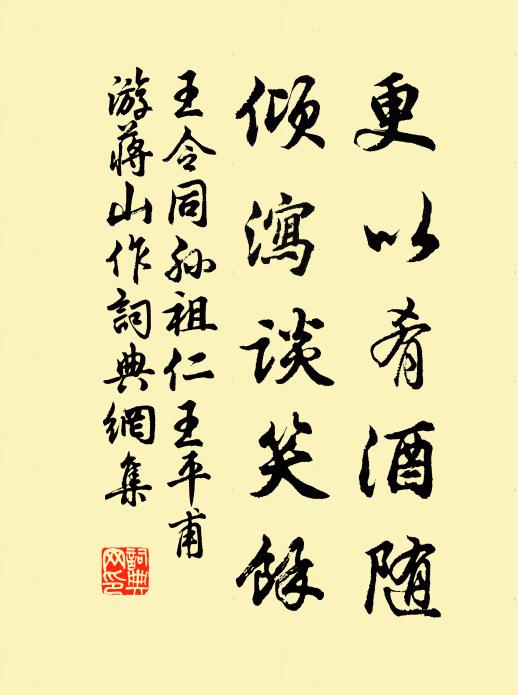 更以肴酒随
倾泻谈笑馀
王令同孙祖仁王平甫
游蒋山作詞典網集
詞典网印